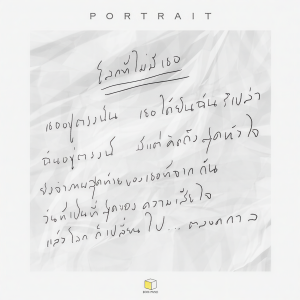 PORTRAIT
โลกที่ไม่มีเธอ
เธออยู่ตรงนั้น เธอได้ยินฉันรึเปล่า
ฉันอยู่ตรงนี้ มีแต่คิดถึงสุดหัวใจ
ของเธอที่จากกัน
วันที่เป็นที่สุดของความเสียใจ
แล้วโลกก็เปลี่ยนไป... ตลอดกาล